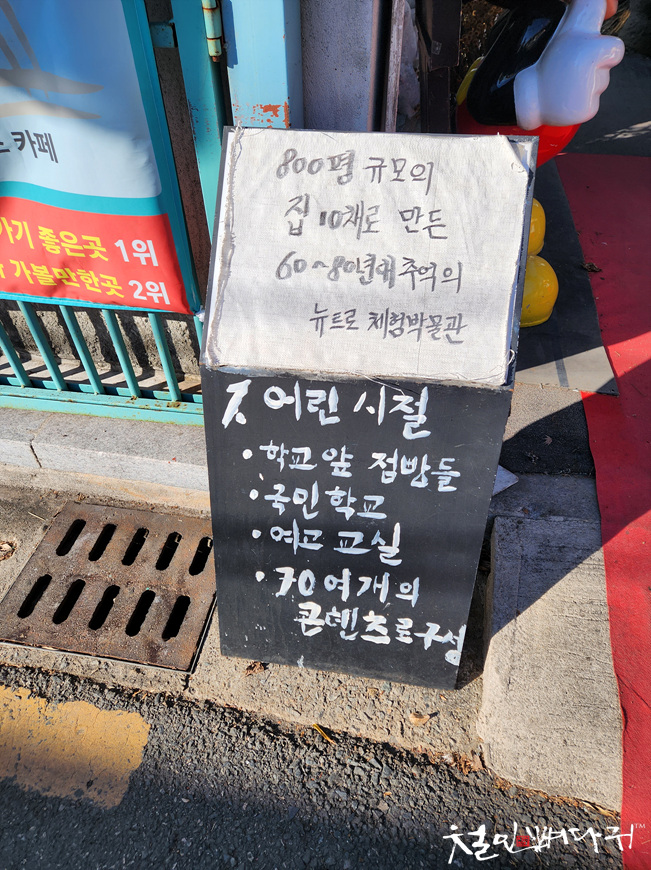 카페
가기 좋은곳 1위
가볼만한곳 2위
800평 규모의
집 10채로 만든
60~80년대 추억의
뉴트로 체험박물관
1. 어린시절
· 학교앞 점빵들
· 국민학교
· 여고 교실
· 70여개의
콘텐츠로구성